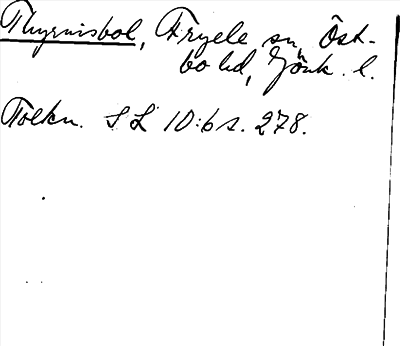 Thyrnisbol, Fryele sn, Öst-
bo hd, Jönk. l.
Tolkn. SL 10:6 s. 278.